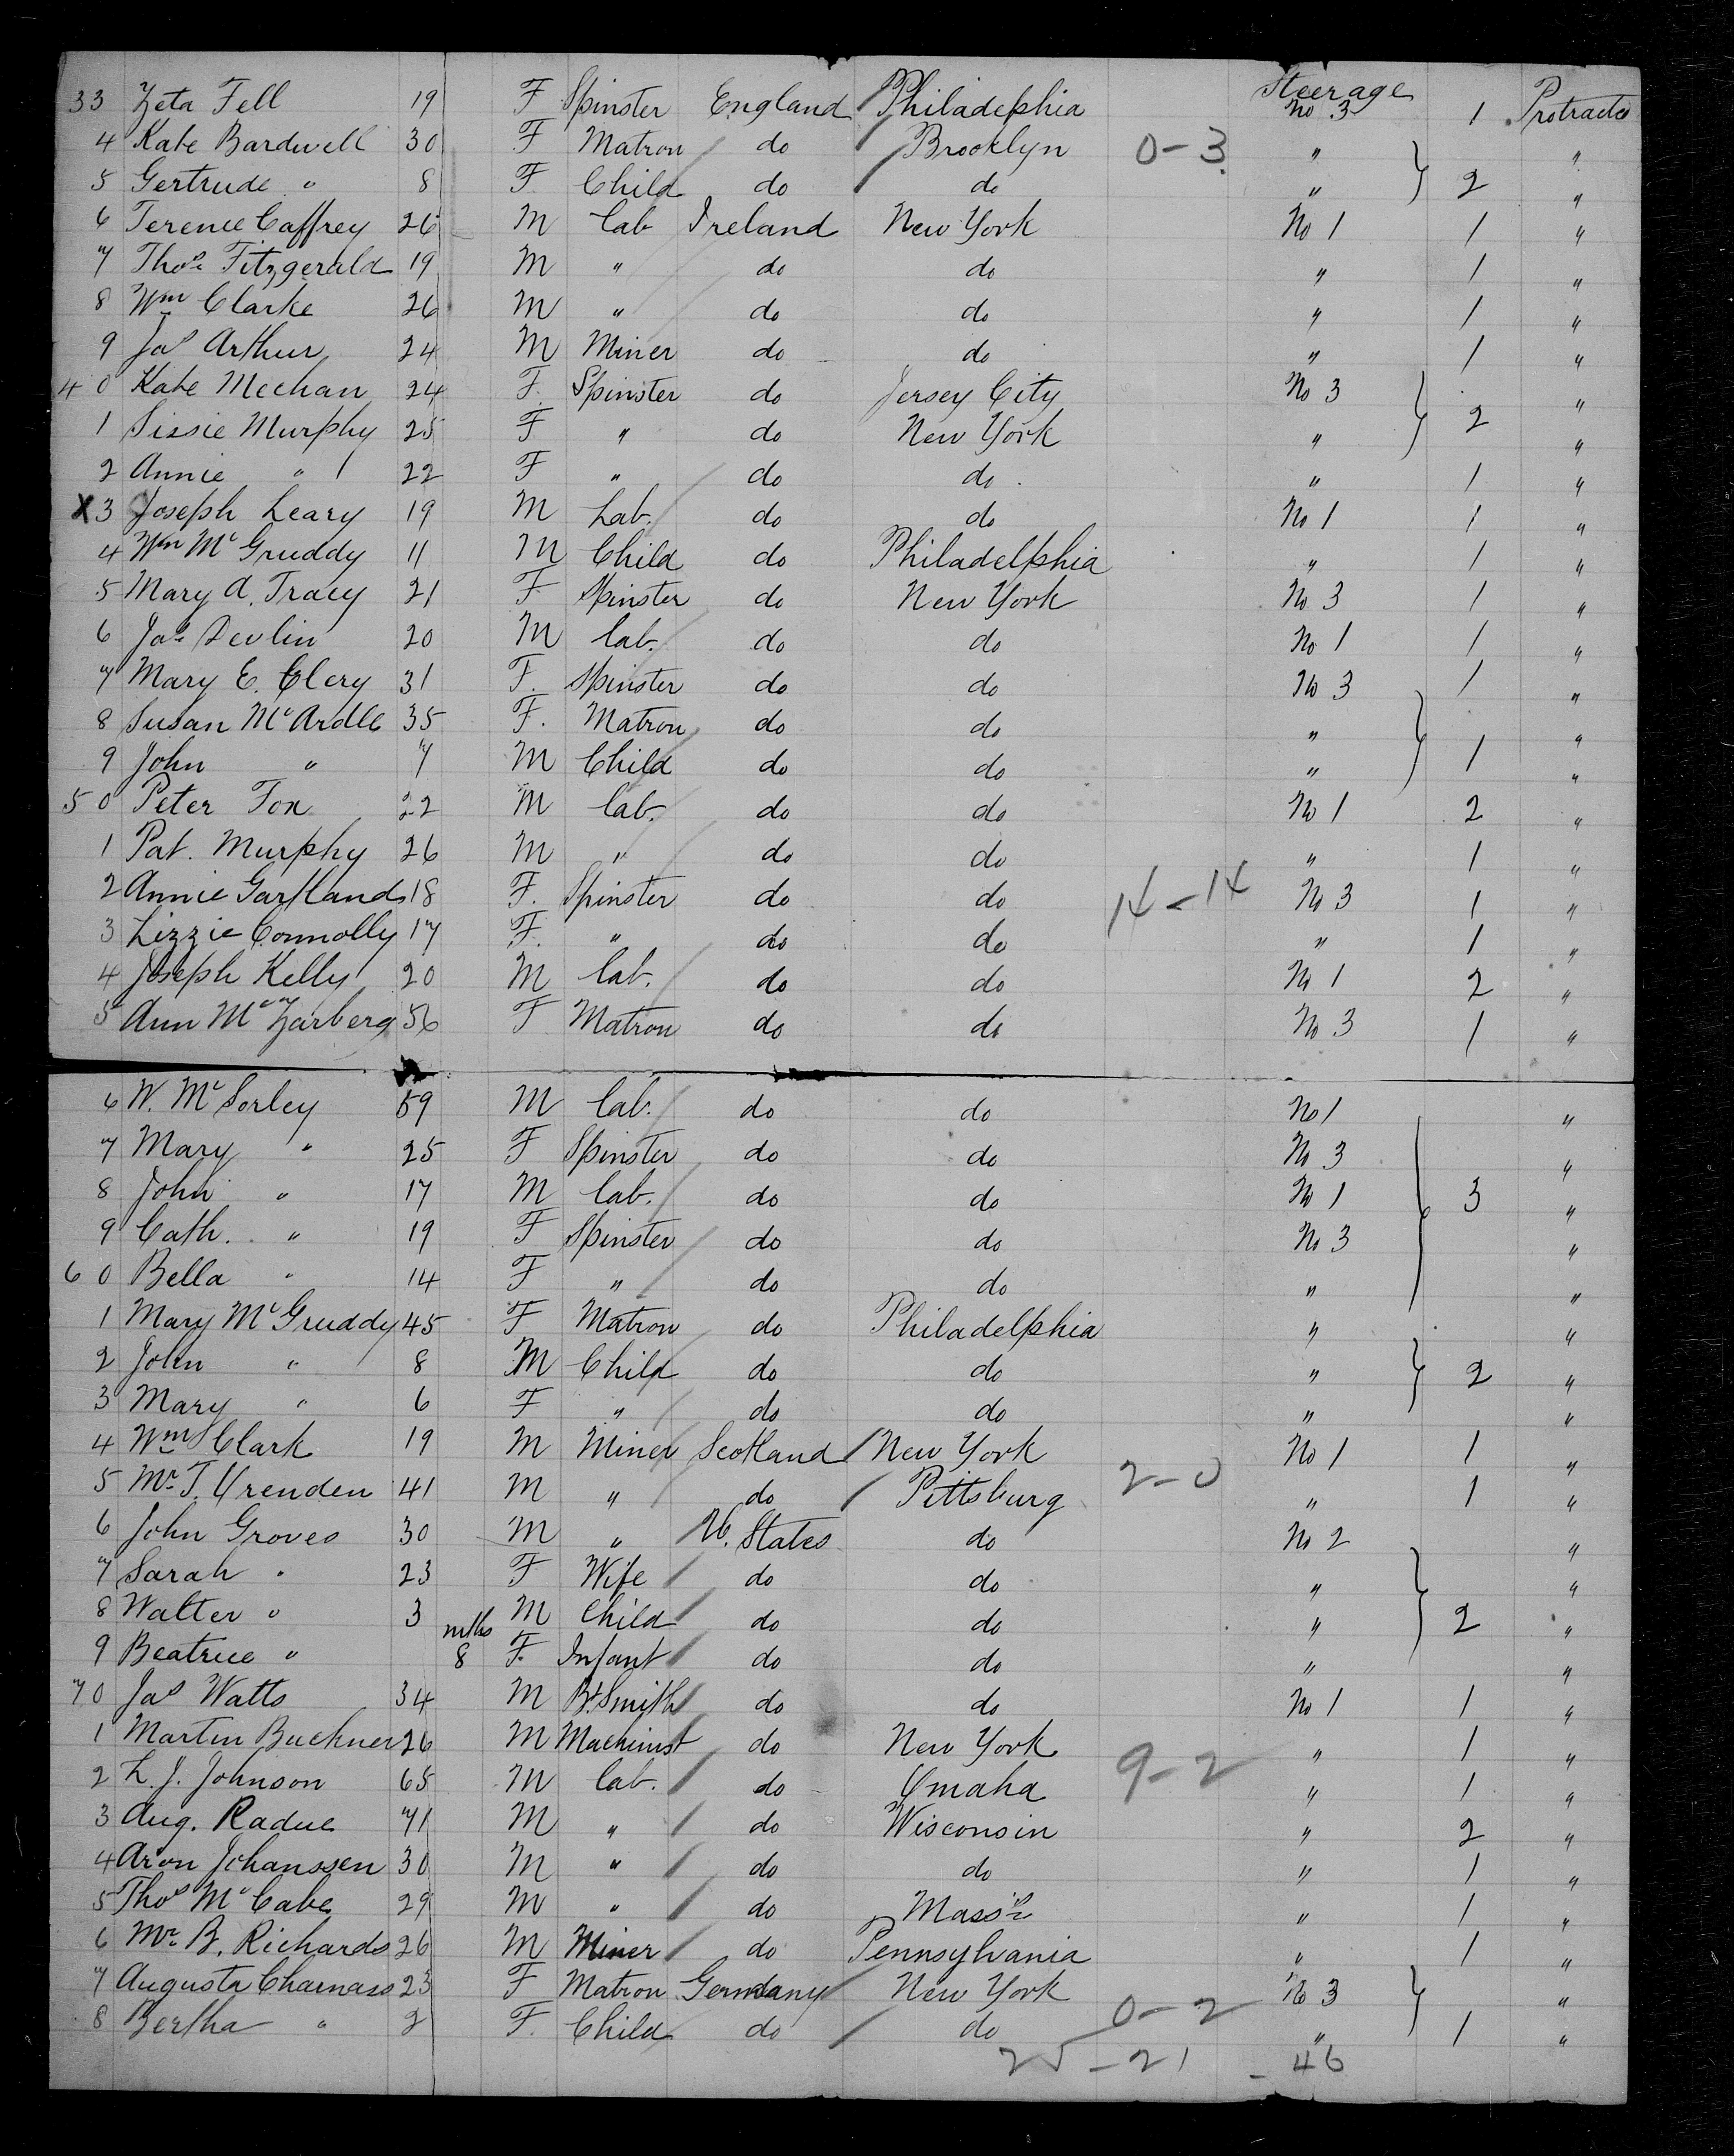 33 Zeta Fell 19 F Spinster England Philadelphia Steerage No 3 1 Protracted
4 Kate Bardwell 30 F Matron do Brooklyn 0-3 " "
5 Gertrude " 8 F Child do do " 2 "
6 Terence Caffrey 26 M Lab Ireland New York No 1 1 "
7 Thos. Fitzgerald 19 M " do do " 1 "
8 Wm Clarke 26 M " do do " 1 "
9 Jas Arthur 24 M Miner do do " 1 "
40 Kate Meehan 24 F. Spinster do Jersey City No 3 "
1 Sissie Murphy 25 F " do New York " 2 "
2 Annie " 22 F " do do " 1 "
X3 Joseph Leary 19 M Lab. do do No 1 1 "
4 Wm McGruddy 11 M Child do Philadelphia " 1 "
5 Mary A. Tracy 21 F Spinster do New York No 3 1 "
6 Jas. Devlin 20 M Lab. do do No 1 1 "
7 Mary E. Clery 31 F. Spinster do do No 3 1 "
8 Susan McArdle 35 F. Matron do do " "
9 John " 7 M Child do do " 1 "
50 Peter Fox 22 M Lab. do do No 1 2 "
1 Pat. Murphy 26 M " do do " 1 "
2 Annie Gartland 18 F. Spinster do do 14-14 No 3 1 "
3 Lizzie Connolly 17 F. " do do " 1 "
4 Joseph Kelly 20 M Lab. do do No 1 2 "
5 Ann 56 F Matron do do No 3 1 "
6 W. McSorley 59 M Lab. do do No 1 "
7 Mary " 25 F Spinster do do No 3 "
8 John " 17 M Lab. do do No 1 3 "
9 Cath. " 19 F Spinster do do No 3 "
60 Bella " 14 F " do do " "
1 Mary McGruddy 45 F Matron do Philadelphia " "
2 John " 8 M Child do do " 2 "
3 Mary " 6 F " do do " "
4 Wm Clark 19 M Miner Scotland New York No 1 1 "
5 Mr. T. 41 M " do Pittsburg 2-0 " 1 "
6 John Groves 30 M " U. States do No 2 "
7 Sarah " 23 F Wife do do " "
8 Walter " 3 M Child do do " 2 "
9 Beatrice " mths 8 F. Infant do do " "
70 Jas Watts 34 M Bk Smith do do No 1 1 "
1 Martin Buckner 26 M Machinist do New York " 1 "
2 L. J. Johnson 65 M Lab. do Omaha 9-2 " 1 "
3 Aug. Radue 71 M " do Wisconsin " 2 "
4 Aron Johanssen 30 M " do do " 1 "
5 Thos McCabe 29 M " do Mass " 1 "
6 Mr. B. Richards 26 M Miner do Pennsylvania " 1 "
7 Augusta Charnass 23 F Matron Germany New York No 3 "
8 Bertha " 2 F. Child do do 0-2 " 1 "
25 - 21 - 46